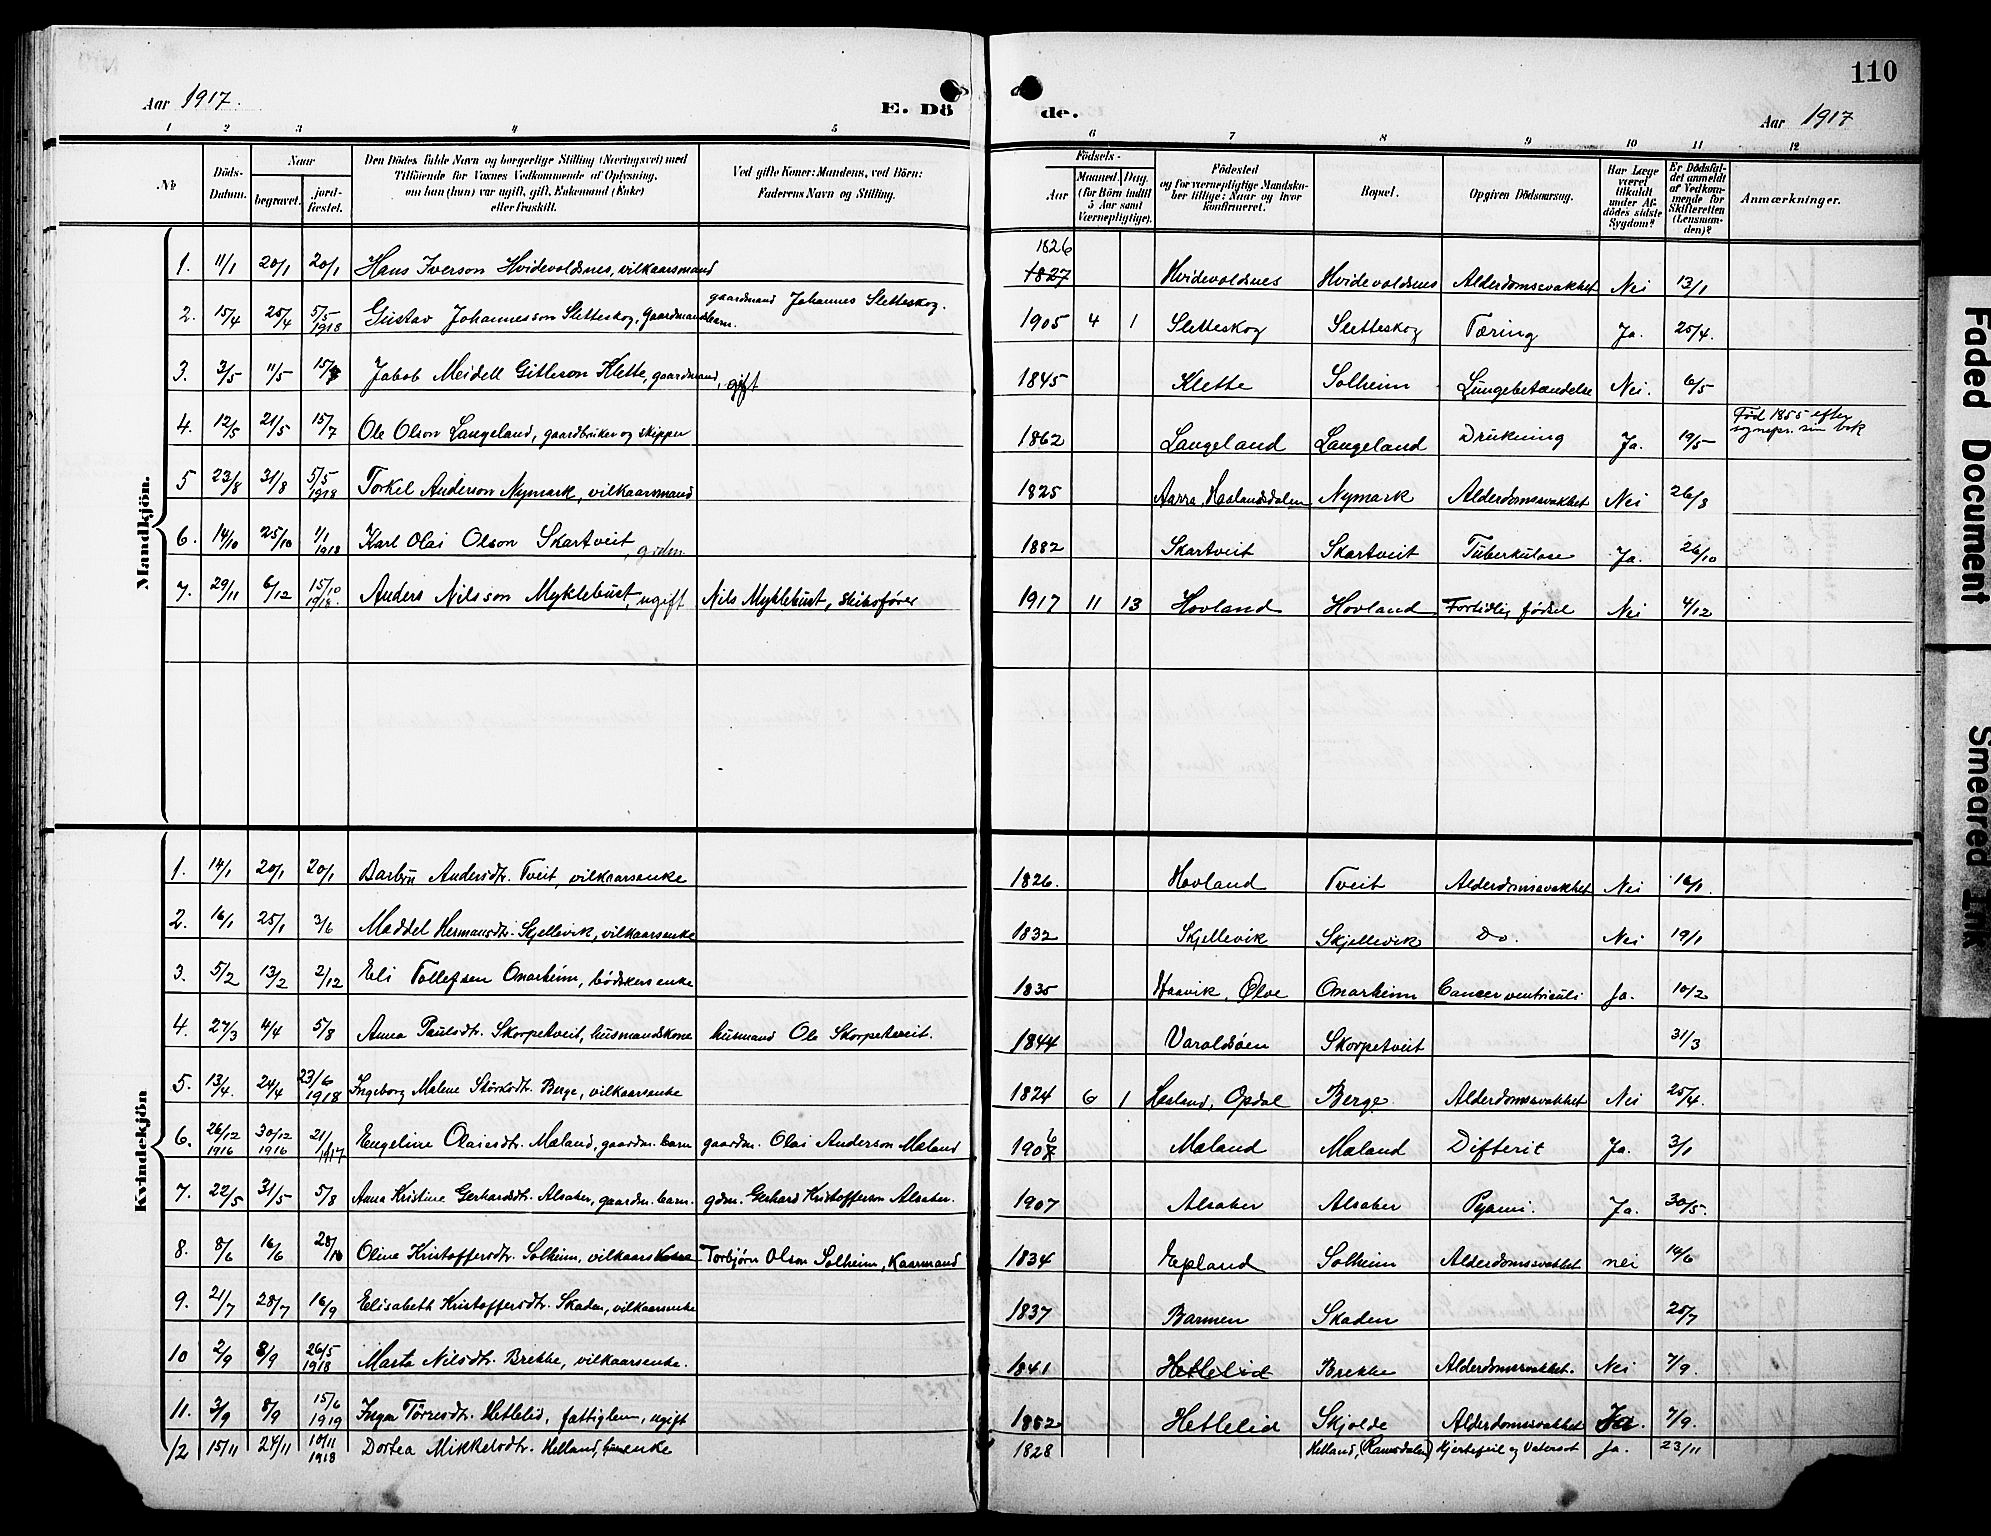 110
Aar 1917.
E. Dö
de.
Aar 1917
1 2 3 4 5 6 7 8 9 10 11 12
No
Döds-Datum.
Naar
begravet.
jord-fæstet.
Den Dödes fulde Navn og borgerlige Stilling (Næringsvei) med
Tilföiende for Voxnes Vedkommende af Oplysning,
om han (hun) var ugift, gift, Enkemand (Enke)
eller fraskilt.
Ved gifte Koner: Mandens, ved Börn:
Faderens Navn og Stilling.
Födsels-
Aar
Maaned. Dag.
(for Börn indtil
5 Aar samt
Værnepligtige).
Födested
og for værnepligtige Mandska-
ber tillige: Naar og hvor
konfirmeret.
Bopæl.
Opgiven Dödsaarsag.
Har Læge
været
tilkaldt
under Af-
dödes sidste
Sygdom?
Er Dödsfal-
det anmeldt
af Vedkom-
mende for
Skifteretten
(Lensman-
den)?
Anmærkninger.
Mandkjön.
1. 11/1 20/1 20/1 Hans Iverson Hvidevoldsnes, vilkaarsmand 1826 1827 Hvidevoldsnes Hvidevoldsnes Alderdomssvakhet Nei 13/1
2. 15/4 25/4 5/5 1918 Gustav Johannesson Sletteskog, Gaardmandsbarn. gaardmand Johannes Sletteskog. 1905 4 1 Sletteskog Sletteskog Tæring Ja. 25/4.
3. 3/5 11/5 15/7 Jakob Meidell Gitleson Klette, gaardmand, gift 1845 Klette Solheim Lungebetændelse Nei. 6/5
4. 12/5 21/5 15/7 Ole Olson Langeland, gaardbruker og skipper 1862 Langeland Langeland Drukning Ja. 19/5 Fød 1855 efter
5 23/8 31/8 5/5 1918 Torkel Anderson Nymark, vilkaarsmand 1825 Aarra, Haalandsdalen Nymark Alderdomssvakhet Nei 26/8
6. 14/10 25/10 1/1 1918 Karl Olai Olson Skartveit, 1882 Skartveit Skartveit Tuberkulose Ja. 26/10
7. 29/11 6/12 15/10 1918. Anders Nilsson Myklebust, ugift Nils Myklebust, skibsfører 1917 11 13 Hovland Hovland Fortidlig fødsel Nei 4/12
Kvindekjön
1. 14/1 20/1 20/1 Barbru Andersdtr. Tveit, vilkaarsenke 1826. Hovland Tveit Alderdomssvakhet Nei 16/1.
2. 16/1 25/1 3/6 Maddel Hermansdtr. Skjellevik, vilkaarsenke 1832 Skjellevik Skjellevik Do. Nei 19/1
3. 5/2 13/2 2/12 Eli Tollefsen Onarheim, bødkersenke 1835 Vaavik, Ølve Onarheim Cancer ventriculi Ja. 10/2
4. 27/3 4/4 5/8 Anna Paulsdtr. Skorpetveit, husmandskone husmand Ole Skorpetveit. 1844 Varaldsøen Skorpetveit 31/3
5. 13/4. 24/4 23/6 1918 Ingeborg Malene Størksdtr. Berge, vilkaarsenke 1824 6 1 Haaland, Opdal Berge. Alderdomssvakhet Nei 25/4.
6. 26/12 1916 30/12 1916 21/1 1917 Engeline Olaiesdtr. Maland, gaardm. barn gaardm. Olai Anderson Maland 1906 Maland Maland Difterit Ja. 3/1
7. 22/5 31/5 5/8 Anna Kristine Gerhardsdtr. Alsaker, gaardm. barn. gdm. Gerhard Kristofferson Alsaker. 1907 Alsaker Alsaker Pyæmi. Ja. 30/5.
8. 8/6 16/6 28/10 Oline Kristoffersdtr. Solheim, vilkaarskone Torbjørn Olson Solheim, Kaarmand 1834 Epland Solheim Alderdomssvakhet nei 14/6
9. 21/7 28/7 16/9 Elisabeth Kristoffersdtr. Skaden, vilkaarsenke 1837 Barmen Skaden 25/7
10 2/9 8/9 26/5 1918 Marta Nilsdtr. Brekke, vilkaarsenke. 1841 Hetlelid Brekke Alderdomssvakhet. Nei 7/9.
11. 3/9 8/9 15/6 1919 Inga Torresdtr. Hetlelid, fattiglem, ugift 1852 Hetlelid Skjolde Alderdomssvakhet Ja. 7/9.
12 15/11 24/11 10/11 1918 Dortea Mikkelsdtr. Helland, enke 1828 Helland, (Ramsdalen) Hjertefeil og Vatersot Ja. 23/11
Faded Document
Smeared Ink